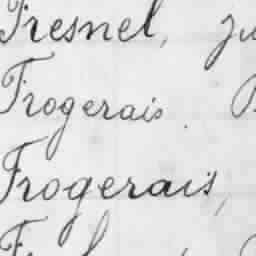 Fresnel,
Frogerais.
Frogerais,